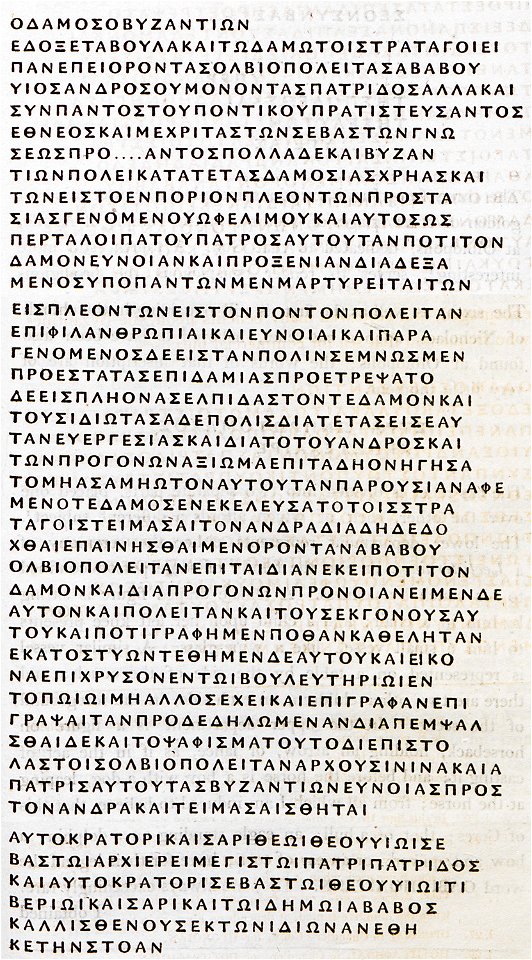 ΟΔΑΜΟΣΟΒΥΖΑΝΤΙΩΝ
ΕΔΟΞΕΤΑΒΟΥΛΑΚΑΙΤΩΔΑΜΩΤΟΙΣΤΡΑΤΑΓΟΙΕΙ
ΠΑΝΕΠΕΙΟΡΟΝΤΑΣΟΛΒΙΟΠΟΛΕΙΤΑΣΑΒΑΒΟΥ
ΥΙΟΣΑΝΔΡΟΣΟΥΜΟΝΟΝΤΑΣΠΑΤΡΙΔΟΣΑΛΛΑΚΑΙ
ΣΥΝΠΑΝΤΟΣΤΟΥΠΟΝΤΙΚΟΥΠΡΑΤΙΣΤΕΥΣΑΝΤΟΣ
ΕΘΝΕΟΣΚΑΙΜΕΧΡΙΤΑΣΤΩΝΣΕΒΑΣΤΩΝΓΝΩ
ΣΕΩΣΠΡΟ....ΑΝΤΟΣΠΟΛΛΑΔΕΚΑΙΒΥΖΑΝ
ΤΙΩΝΠΟΛΕΙΚΑΤΑΤΕΤΑΣΔΑΜΟΣΙΑΣΧΡΗΑΣΚΑΙ
ΤΩΝΕΙΣΤΟΕΝΠΟΡΙΟΝΠΛΕΟΝΤΩΝΠΡΟΣΤΑ
ΣΙΑΣΓΕΝΟΜΕΝΟΥΩΦΕΛΙΜΟΥΚΑΙΑΥΤΟΣΩΣ
ΠΕΡΤΑΛΟΙΠΑΤΟΥΠΑΤΡΟΣΑΥΤΟΥΤΑΝΠΟΤΙΤΟΝ
ΔΑΜΟΝΕΥΝΟΙΑΝΚΑΙΠΡΟΞΕΝΙΑΝΔΙΑΔΕΞΑ
ΜΕΝΟΣΥΠΟΠΑΝΤΩΝΜΕΝΜΑΡΤΥΡΕΙΤΑΙΤΩΝ
ΕΙΣΠΛΕΟΝΤΩΝΕΙΣΤΟΝΠΟΝΤΟΝΠΟΛΕΙΤΑΝ
ΕΠΙΦΙΛΑΝΘΡΩΠΙΑΙΚΑΙΕΥΝΟΙΑΙΚΑΙΠΑΡΑ
ΓΕΝΟΜΕΝΟΣΔΕΕΙΣΤΑΝΠΟΛΙΝΣΕΜΝΩΣΜΕΝ
ΠΡΟΕΣΤΑΤΑΣΕΠΙΔΑΜΙΑΣΠΡΟΕΤΡΕΨΑΤΟ
ΔΕΕΙΣΠΛΗΟΝΑΣΕΛΠΙΔΑΣΤΟΝΤΕΔΑΜΟΝΚΑΙ
ΤΟΥΣΙΔΙΩΤΑΣΑΔΕΠΟΛΙΣΔΙΑΤΕΤΑΣΕΙΣΕΑΥ
ΤΑΝΕΥΕΡΓΕΣΙΑΣΚΑΙΔΙΑΤΟΤΟΥΑΝΔΡΟΣΚΑΙ
ΤΩΝΠΡΟΓΟΝΩΝΑΞΙΩΜΑΕΠΙΤΑΔΗΟΝΗΓΗΣΑ
ΤΟΜΗΑΣΑΜΗΩΤΟΝΑΥΤΟΥΤΑΝΠΑΡΟΥΣΙΑΝΑΦΕ
ΜΕΝΟΤΕΔΑΜΟΣΕΝΕΚΕΛΕΥΣΑΤΟΤΟΙΣΣΤΡΑ
ΤΑΓΟΙΣΤΕΙΜΑΣΑΙΤΟΝΑΝΔΡΑΔΙΑΔΗΔΕΔΟ
ΧΘΑΙΕΠΑΙΝΗΣΘΑΙΜΕΝΟΡΟΝΤΑΝΑΒΑΒΟΥ
ΟΛΒΙΟΠΟΛΕΙΤΑΝΕΠΙΤΑΙΔΙΑΝΕΚΕΙΠΟΤΙΤΟΝ
ΔΑΜΟΝΚΑΙΔΙΑΠΡΟΓΟΝΩΝΠΡΟΝΟΙΑΝΕΙΜΕΝΔΕ
ΑΥΤΟΝΚΑΙΠΟΛΕΙΤΑΝΚΑΙΤΟΥΣΕΚΓΟΝΟΥΣΑΥ
ΤΟΥΚΑΙΠΟΤΙΓΡΑΦΗΜΕΝΠΟΘΑΝΚΑΘΕΛΗΤΑΝ
ΕΚΑΤΟΣΤΥΩΝΤΕΘΗΜΕΝΔΕΑΥΤΟΥΚΑΙΕΙΚΟ
ΝΑΕΠΙΧΡΥΣΟΝΕΝΤΩΙΒΟΥΛΕΥΤΗΡΙΩΙΕΝ
ΤΟΠΩΙΩΙΜΗΑΛΛΟΣΕΧΕΙΚΑΙΕΠΙΓΡΑΦΑΝΕΠΙ
ΓΡΑΨΑΙΤΑΝΠΡΟΔΕΔΗΛΩΜΕΝΑΝΔΙΑΠΕΜΨΑΛ
ΣΘΑΙΔΕΚΑΙΤΟΨΑΦΙΣΜΑΤΟΥΤΟΔΙΕΠΙΣΤΟ
ΛΑΣΤΟΙΣΟΛΒΙΟΠΟΛΕΙΤΑΝΑΡΧΟΥΣΙΝΙΝΑΚΑΙΑ
ΠΑΤΡΙΣΑΥΤΟΥΤΑΣΒΥΖΑΝΤΙΩΝΕΥΝΟΙΑΣΠΡΟΣ
ΤΟΝΑΝΔΡΑΚΑΙΤΕΙΜΑΣΑΙΣΘΗΤΑΙ
ΑΥΤΟΚΡΑΤΟΡΙΚΑΙΣΑΡΙΘΕΩΙΘΕΟΥΥΙΩΙΣΕ
ΒΑΣΤΩΙΑΡΧΙΕΡΕΙΜΕΓΙΣΤΩΙΠΑΤΡΙΠΑΤΡΙΔΟΣ
ΚΑΙΑΥΤΟΚΡΑΤΟΡΙΣΕΒΑΣΤΩΙΘΕΟΥΥΙΩΙΤΙ
ΒΕΡΙΩΙΚΑΙΣΑΡΙΚΑΙΤΩΙΔΗΜΩΙΑΒΑΒΟΣ
ΚΑΛΛΙΣΘΕΝΟΥΣΕΚΤΩΝΙΔΙΩΝΑΝΕΘΗ
ΚΕΤΗΝΣΤΟΑΝ